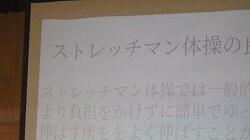 ストレッチマン体操の良
ストレッチマン体操では一般的
より負担をかけずに簡単でゆっ
伸ばす所ををよく伸ばすこと